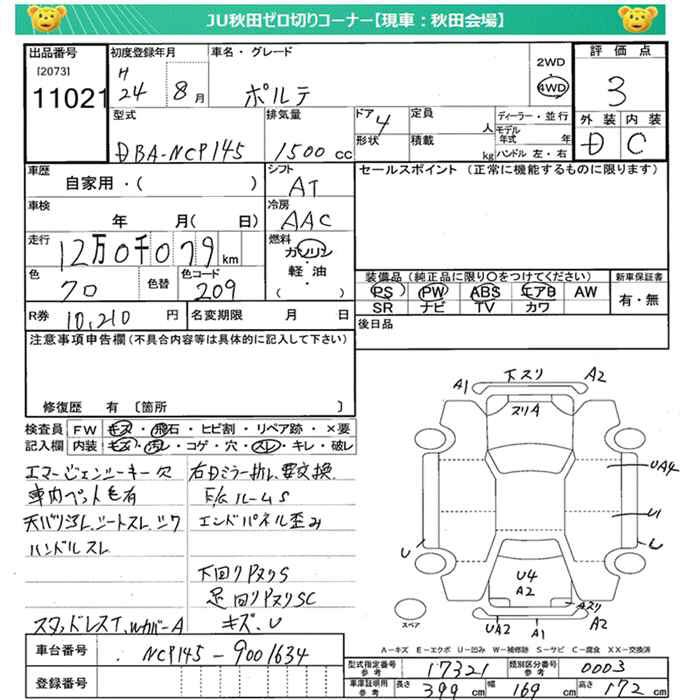 JU秋田ゼロ切りコーナー【現車：秋田会場】
出品番号 初度登録年月 車名・グレード 2WD 評価点
[2073] H
11021 24 8月 ポルテ 4WD 3
型式 排気量 ドア 4 定員 人 ディーラー・並行 外装 内装
形状 積載 kg モデル年式 年
DBA-NCP145 1500cc ハンドル 左・右 D C
車歴 シフト セールスポイント (正常に機能するものに限ります)
自家用・( ) AT
車検 冷房
年 月( 日) AAC
走行 燃料
12万0千079km ガソリン
軽・油
( )
色 色替 色コード 装備品 (純正品に限り○をつけてください) 新車保証書
クロ 209 PS PW ABS エアB AW 有・無
SR ナビ TV カワ
R券 10,210円 名変期限 月 日 後日品
注意事項申告欄(不具合内容等は具体的に記入して下さい)
修復歴 有 [箇所 ]
検査員 FW キズ・飛石・ヒビ割・リペア跡・×要
記入欄 内装 キズ・汚レ・コゲ・穴・スレ・キレ・破レ
エマージェンシーキー欠 右ドミラー折レ要交換
車内ペット毛有 E/GルームS
天バリ汚レ、シートスレ、シワ エンドパネル歪み
ハンドルスレ
下回りPヌリS
足回りPヌリSC
スタッドレスT、WカバーA キズ、U
下スリ
A1 A2
スリA
UA4
U
U
U
U4
A2
Aスリ
UA2 A1 A2
スペア
A-キズ E-エクボ U-凹み W-補修跡 S-サビ C-腐食 XX-交換済
車台番号 NCP145-9001634
登録番号
型式指定番号 参考 17321 類別区分番号 参考 0003
車庫証明用 参考 長さ 399cm 幅 169cm 高さ 172cm